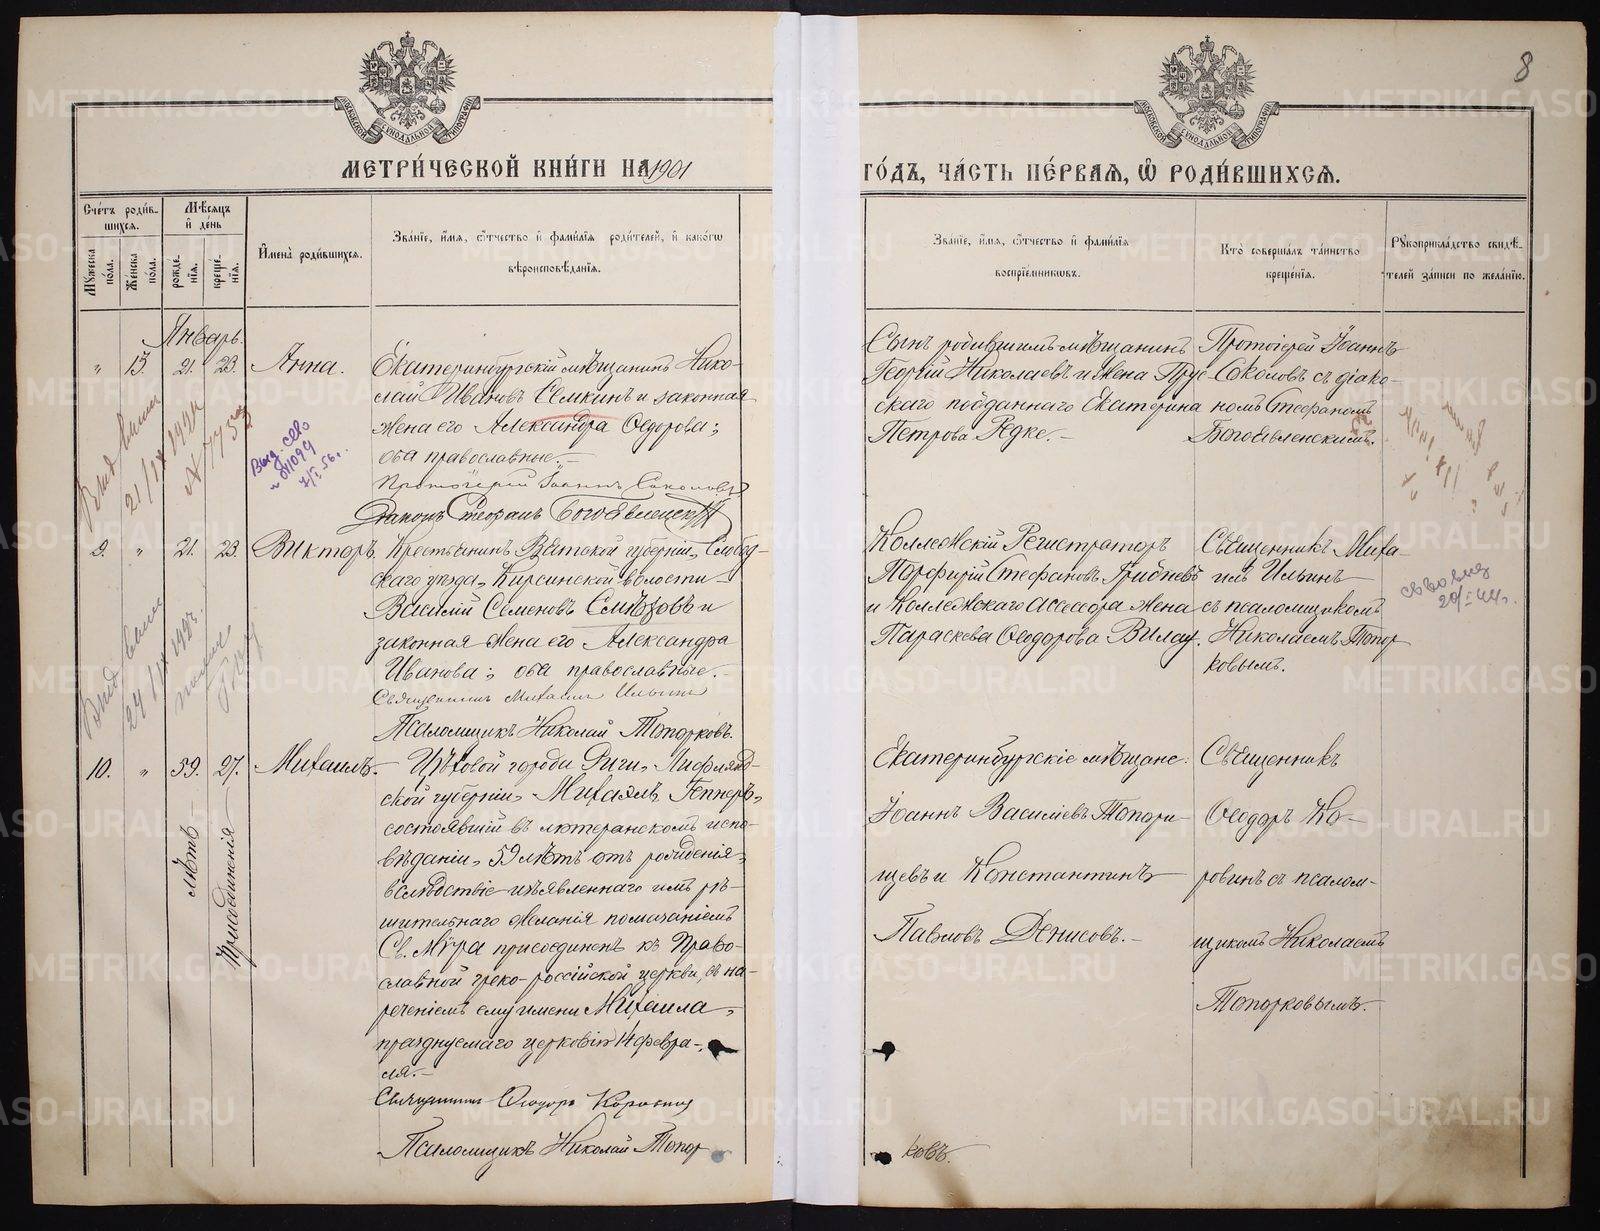 8
МЕТРИЧЕСКОЙ КНИГИ НА 1901
ГОДЪ, ЧАСТЬ ПЕРВАЯ, Ѡ РОДИВШИХСЯ.
Счетъ родив-
шихся.
Мѣсяцъ
и день
Мужеска пола.
Женска пола.
рожде-
нія.
креще-
нія.
Имена родившихся.
Званіе, имя, ѿтчество и фамилія родителей, и какогѡ
вѣроисповѣданія.
Званіе, имя, ѿтчество и фамилія
воспріемниковъ.
Кто совершалъ таинство
крещенія.
Рукоприкладство свидѣ-
телей записи по желанію.
Январь.
" 13. 21. 23. Анна.
Екатеринбургскій мѣщанинъ Нико-
лай Ивановъ Семкинъ и законная
жена его Александра Ѳедорова;
оба православные.-
Протоіерей Іоаннъ Соколовъ
Діаконъ Стефанъ Богоявленскій
Сынъ родившимъ-мѣщанинъ
Георгій Николаевъ и жена Прус-
скаго подданнаго Екатерина
Петрова Редке.-
Протоіерей Іоаннъ
Соколовъ съ діако-
номъ Стефаномъ
Богоявленскимъ.
21/IX 1921
Выд. св-во
7/I 56 г.
9. " 21. 23. Викторъ.
Крестьянинъ Вятской губерніи, Слобод-
скаго уѣзда, Кирсинской волости
Василій Семеновъ Слѣзовъ и
законная жена его Александра
Иванова; оба православные.
Священникъ Михаилъ Ильинъ
Псаломщикъ Николай Топорковъ.
Коллежскій Регистраторъ
Порфирій Стефановъ Грибневъ
и Коллежскаго Ассесора жена
Параскева Ѳеодорова
Священникъ Миха-
илъ Ильинъ
съ псаломщикомъ
Николаемъ Топор
ковымъ.
20/I 44 г.
10. " 59. 27. Михаилъ.
лѣтъ
Присоединенія
Цѣховой города Риги, Лифлянд-
ской губерніи, Михаэль Гепперъ,
состоявшій въ лютеранскомъ испо-
вѣданіи, 59 лѣтъ отъ рожденія,
вслѣдствіе изъявленнаго имъ рѣ-
шительнаго желанія помазаніемъ
Св. Мѵра присоединенъ къ Право-
славной греко-россійской церкви, съ на-
реченіемъ ему имени Михаила,
празднуемаго церковію 14 февра-
ля.-
Священникъ Ѳеодоръ Коровинъ
Псаломщикъ Николай Топор
ковъ.
Екатеринбургскіе мѣщане:
Іоаннъ Василіевъ Топори-
щевъ и Константинъ
Павловъ Денисовъ.-
Священникъ
Ѳеодоръ Ко-
ровинъ съ псалом-
щикомъ Николаемъ
Топорковымъ.
METRIKI.GASO-URAL.RU